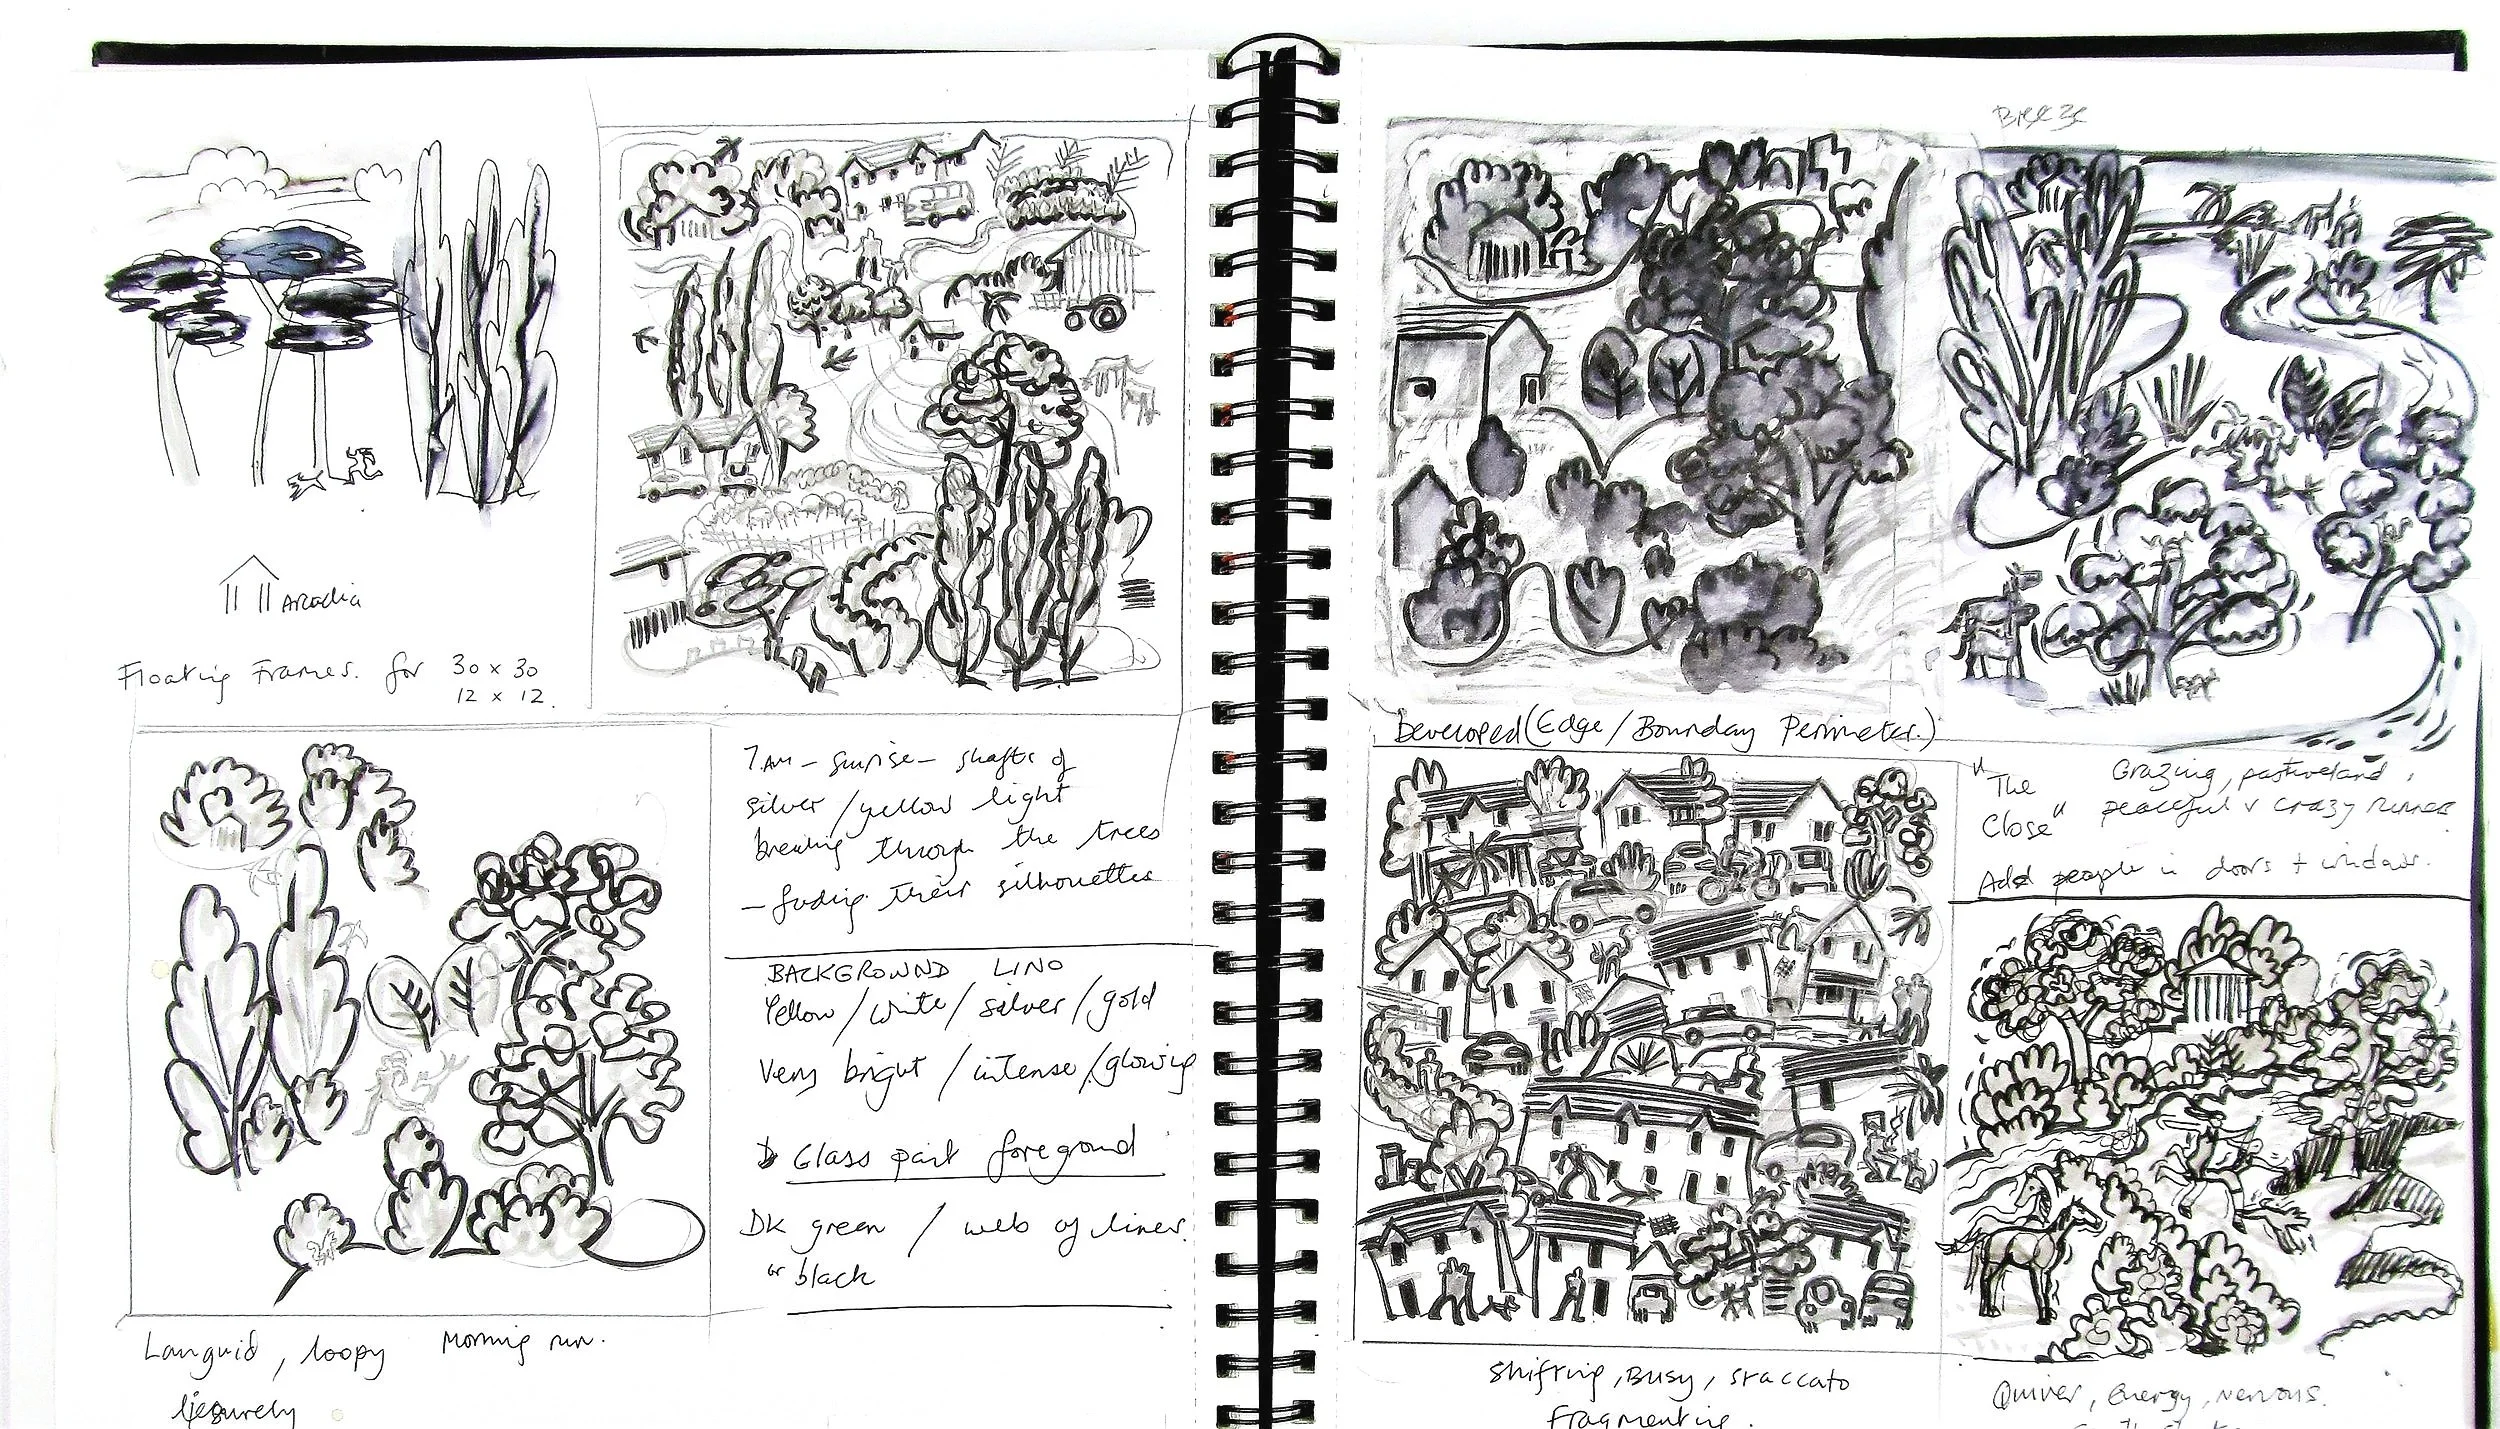 Arcadia
Floating Frames. for 30 x 30
12 x 12.
7.AM - sunrise - shafts of
silver / yellow light
breaking through the trees
- fading their silhouettes
BACKGROUND LINO
Yellow / white / silver / gold
Very bright / intense / glowing
Glass part foreground
DK green / web of lines.
or black
Languid, loopy Morning run.
liesurely
Breeze
Developed (Edge / Bounday Perimeter.)
"The
Close"
Grazing, pastureland,
peaceful v crazy runner
Add people in doors + windows.
Shifting, Busy, staccato
Fragmenting.
Quiver, Energy, nervous.